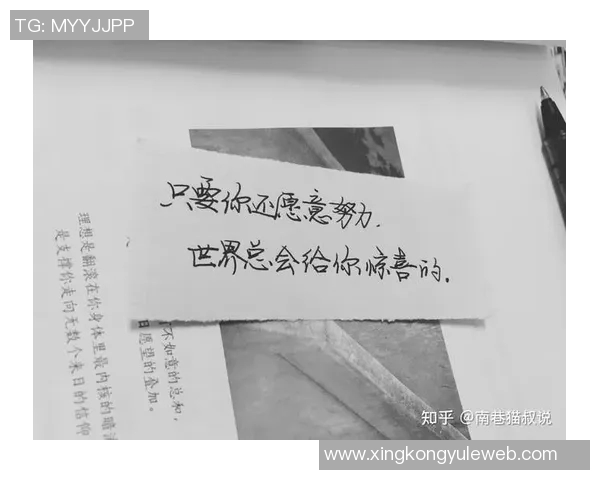 TG: MYYJJPP
只要你还愿意努力.
世界总会给你惊喜的.
理想是翻滚在你身体里最内核的暗
是支撑你走向无数个来日的信仰
不如意的总和，
愿望的叠加。
知乎 @南巷猫叔说
www.xingkongyuleweb.com